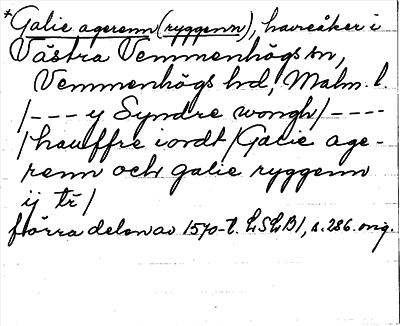 *Galie agerenn (ryggenn), havreåker i
Västra Vemmenhögs sn,
Vemmenhögs hd, Malm. l.
/--- y Syndre wongh/----
/hauffre iordt/Galie age-
renn och galie ryggenn
ij tr/
förra delen av 1570-t. LSLB1, s. 286. orig.